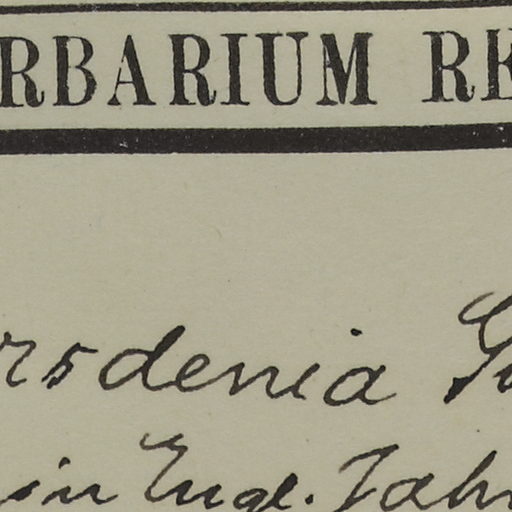 RBARIUM RE
rsdenia
in Engl. Jah